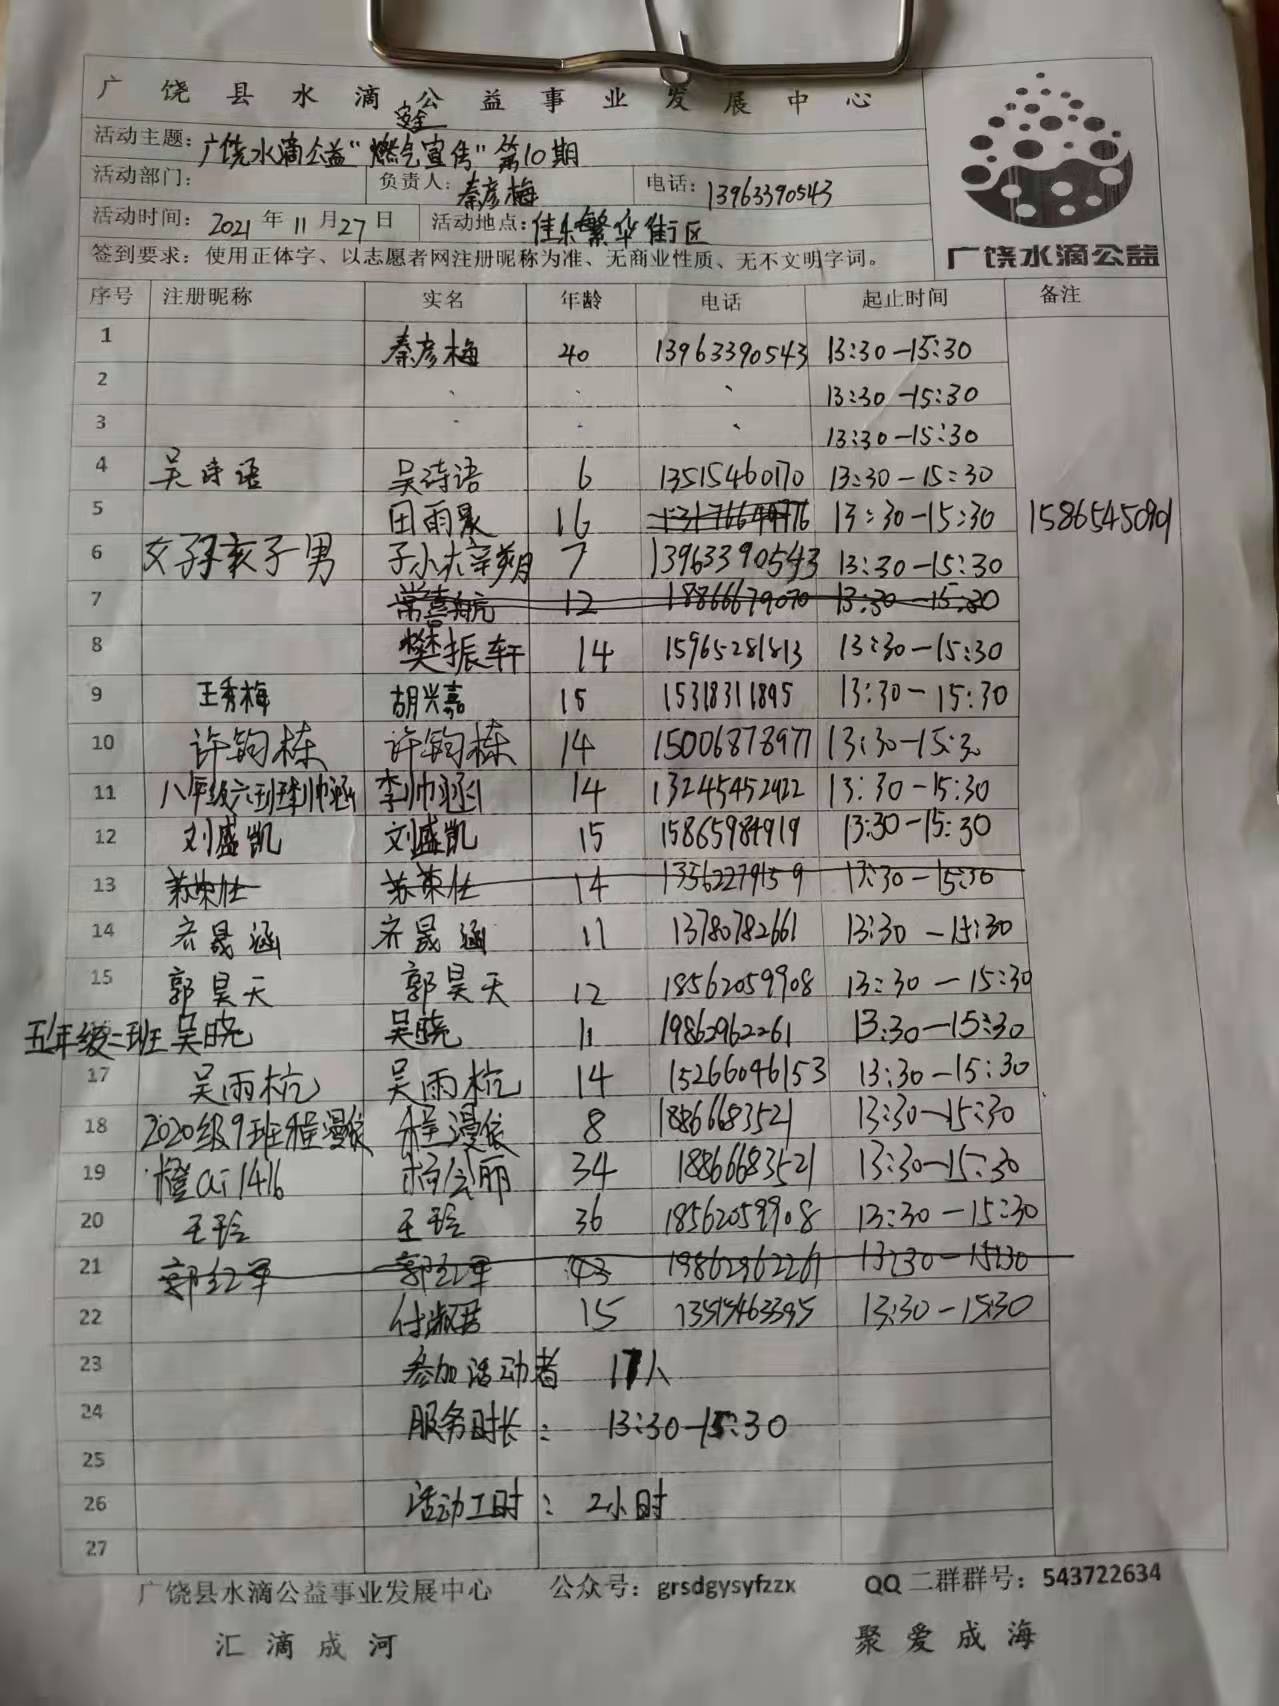 广饶县水滴公益事业发展中心
活动主题：广饶水滴公益“燃气安全宣传”第10期
活动部门： 负责人：秦彦梅 电话：13963390543
活动时间：2021年11月27日 活动地点：佳乐繁华街区
签到要求：使用正体字、以志愿者网注册昵称为准、无商业性质、无不文明字词。
广饶水滴公益
序号 注册昵称 实名 年龄 电话 起止时间 备注
1 秦彦梅 40 13963390543 13:30-15:30
2 13:30-15:30
3 13:30-15:30
4 吴诗语 吴诗语 6 13515460170 13:30-15:30
5 田雨晟 16 13:30-15:30 15865450901
6 男 7 13963390543 13:30-15:30
7 常喜航 12 18866679070 13:30-15:30
8 樊振轩 14 15965281813 13:30-15:30
9 王秀梅 胡兴嘉 15 15318311895 13:30-15:30
10 许钧栋 许钧栋 14 15006878977 13:30-15:30
11 八年级六班李帅涵 李帅涵 14 13245452922 13:30-15:30
12 刘盛凯 刘盛凯 15 15865984919 13:30-15:30
13 苏荣仕 苏荣仕 14 13562279159 13:30-15:30
14 齐晟涵 齐晟涵 11 13780782661 13:30-15:30
15 郭昊天 郭昊天 12 18562059908 13:30-15:30
五年级二班吴晓 吴晓 11 19862962261 13:30-15:30
17 吴雨杭 吴雨杭 14 15266046153 13:30-15:30
18 2020级9班程漫依 程漫依 8 1886683521 13:30-15:30
19 橙ai1416 杨会丽 34 18866683521 13:30-15:30
20 王玲 王玲 36 18562059908 13:30-15:30
21 郭红军 郭红军 43 19862962261 13:30-15:30
22 付淑君 15 13515463395 13:30-15:30
23 参加活动者 17人
24 服务时长：13:30-15:30
25
26 活动工时：2小时
27
广饶县水滴公益事业发展中心 公众号：grsdgysyfzzx QQ二群群号：543722634
汇滴成河 聚爱成海